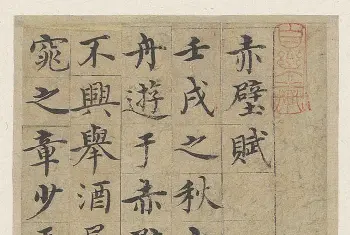 赤壁賦
壬戌之秋
舟遊于赤
不興舉酒
窕之章少